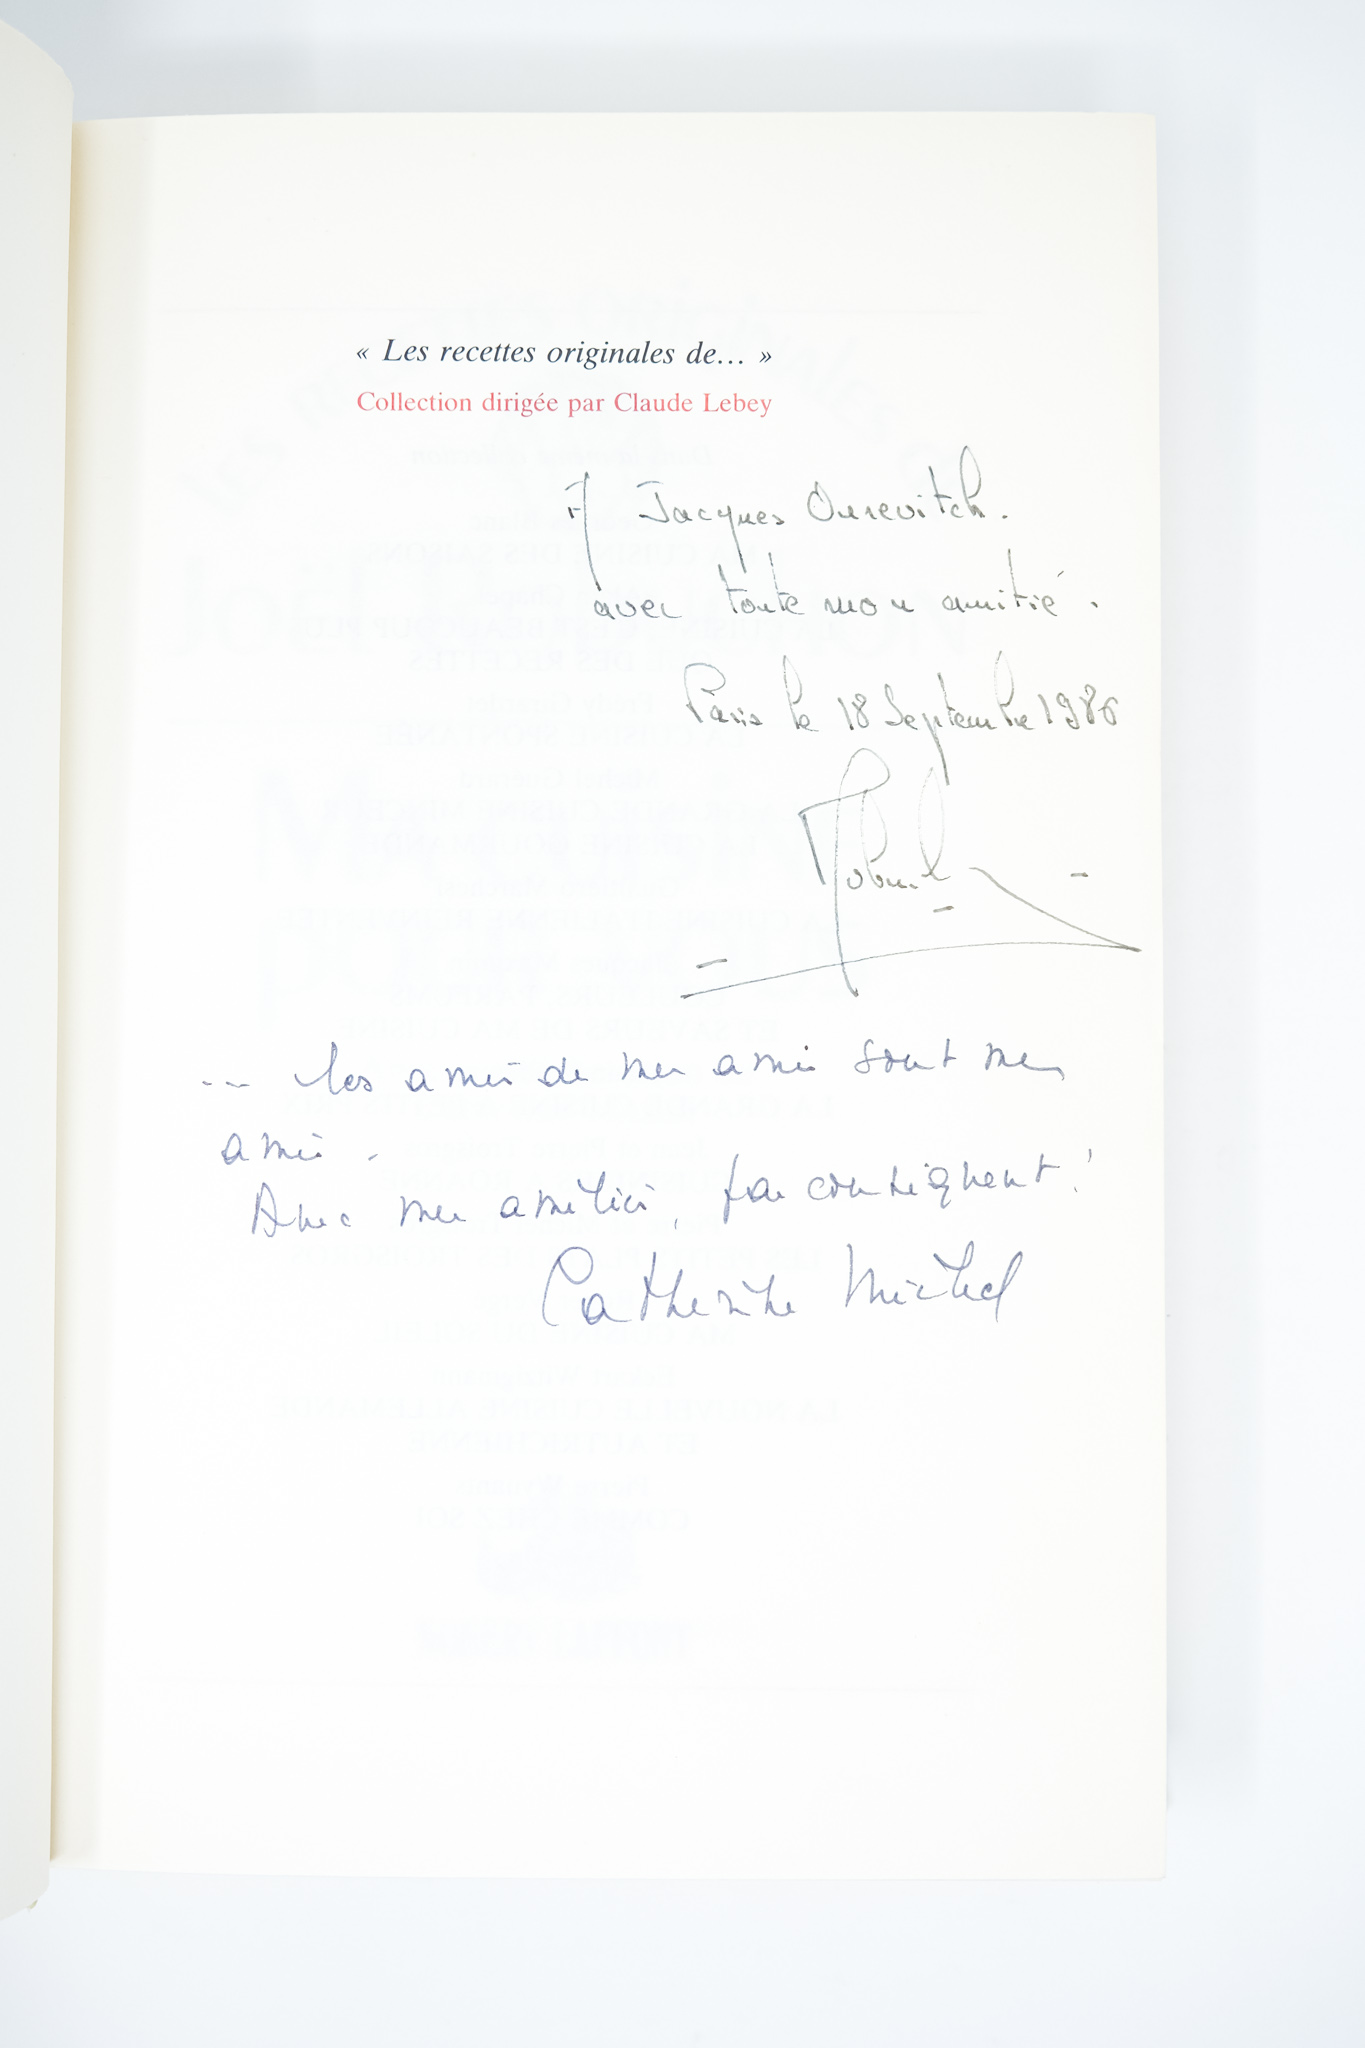 « Les recettes originales de... »
Collection dirigée par Claude Lebey
A Jacques Ourevitch.
avec toute mon amitié.
Paris le 18 Septembre 1986
... les amis de mes amis sont mes
amis.
Avec mes amitiés, par conséquent !
Catherine Michel